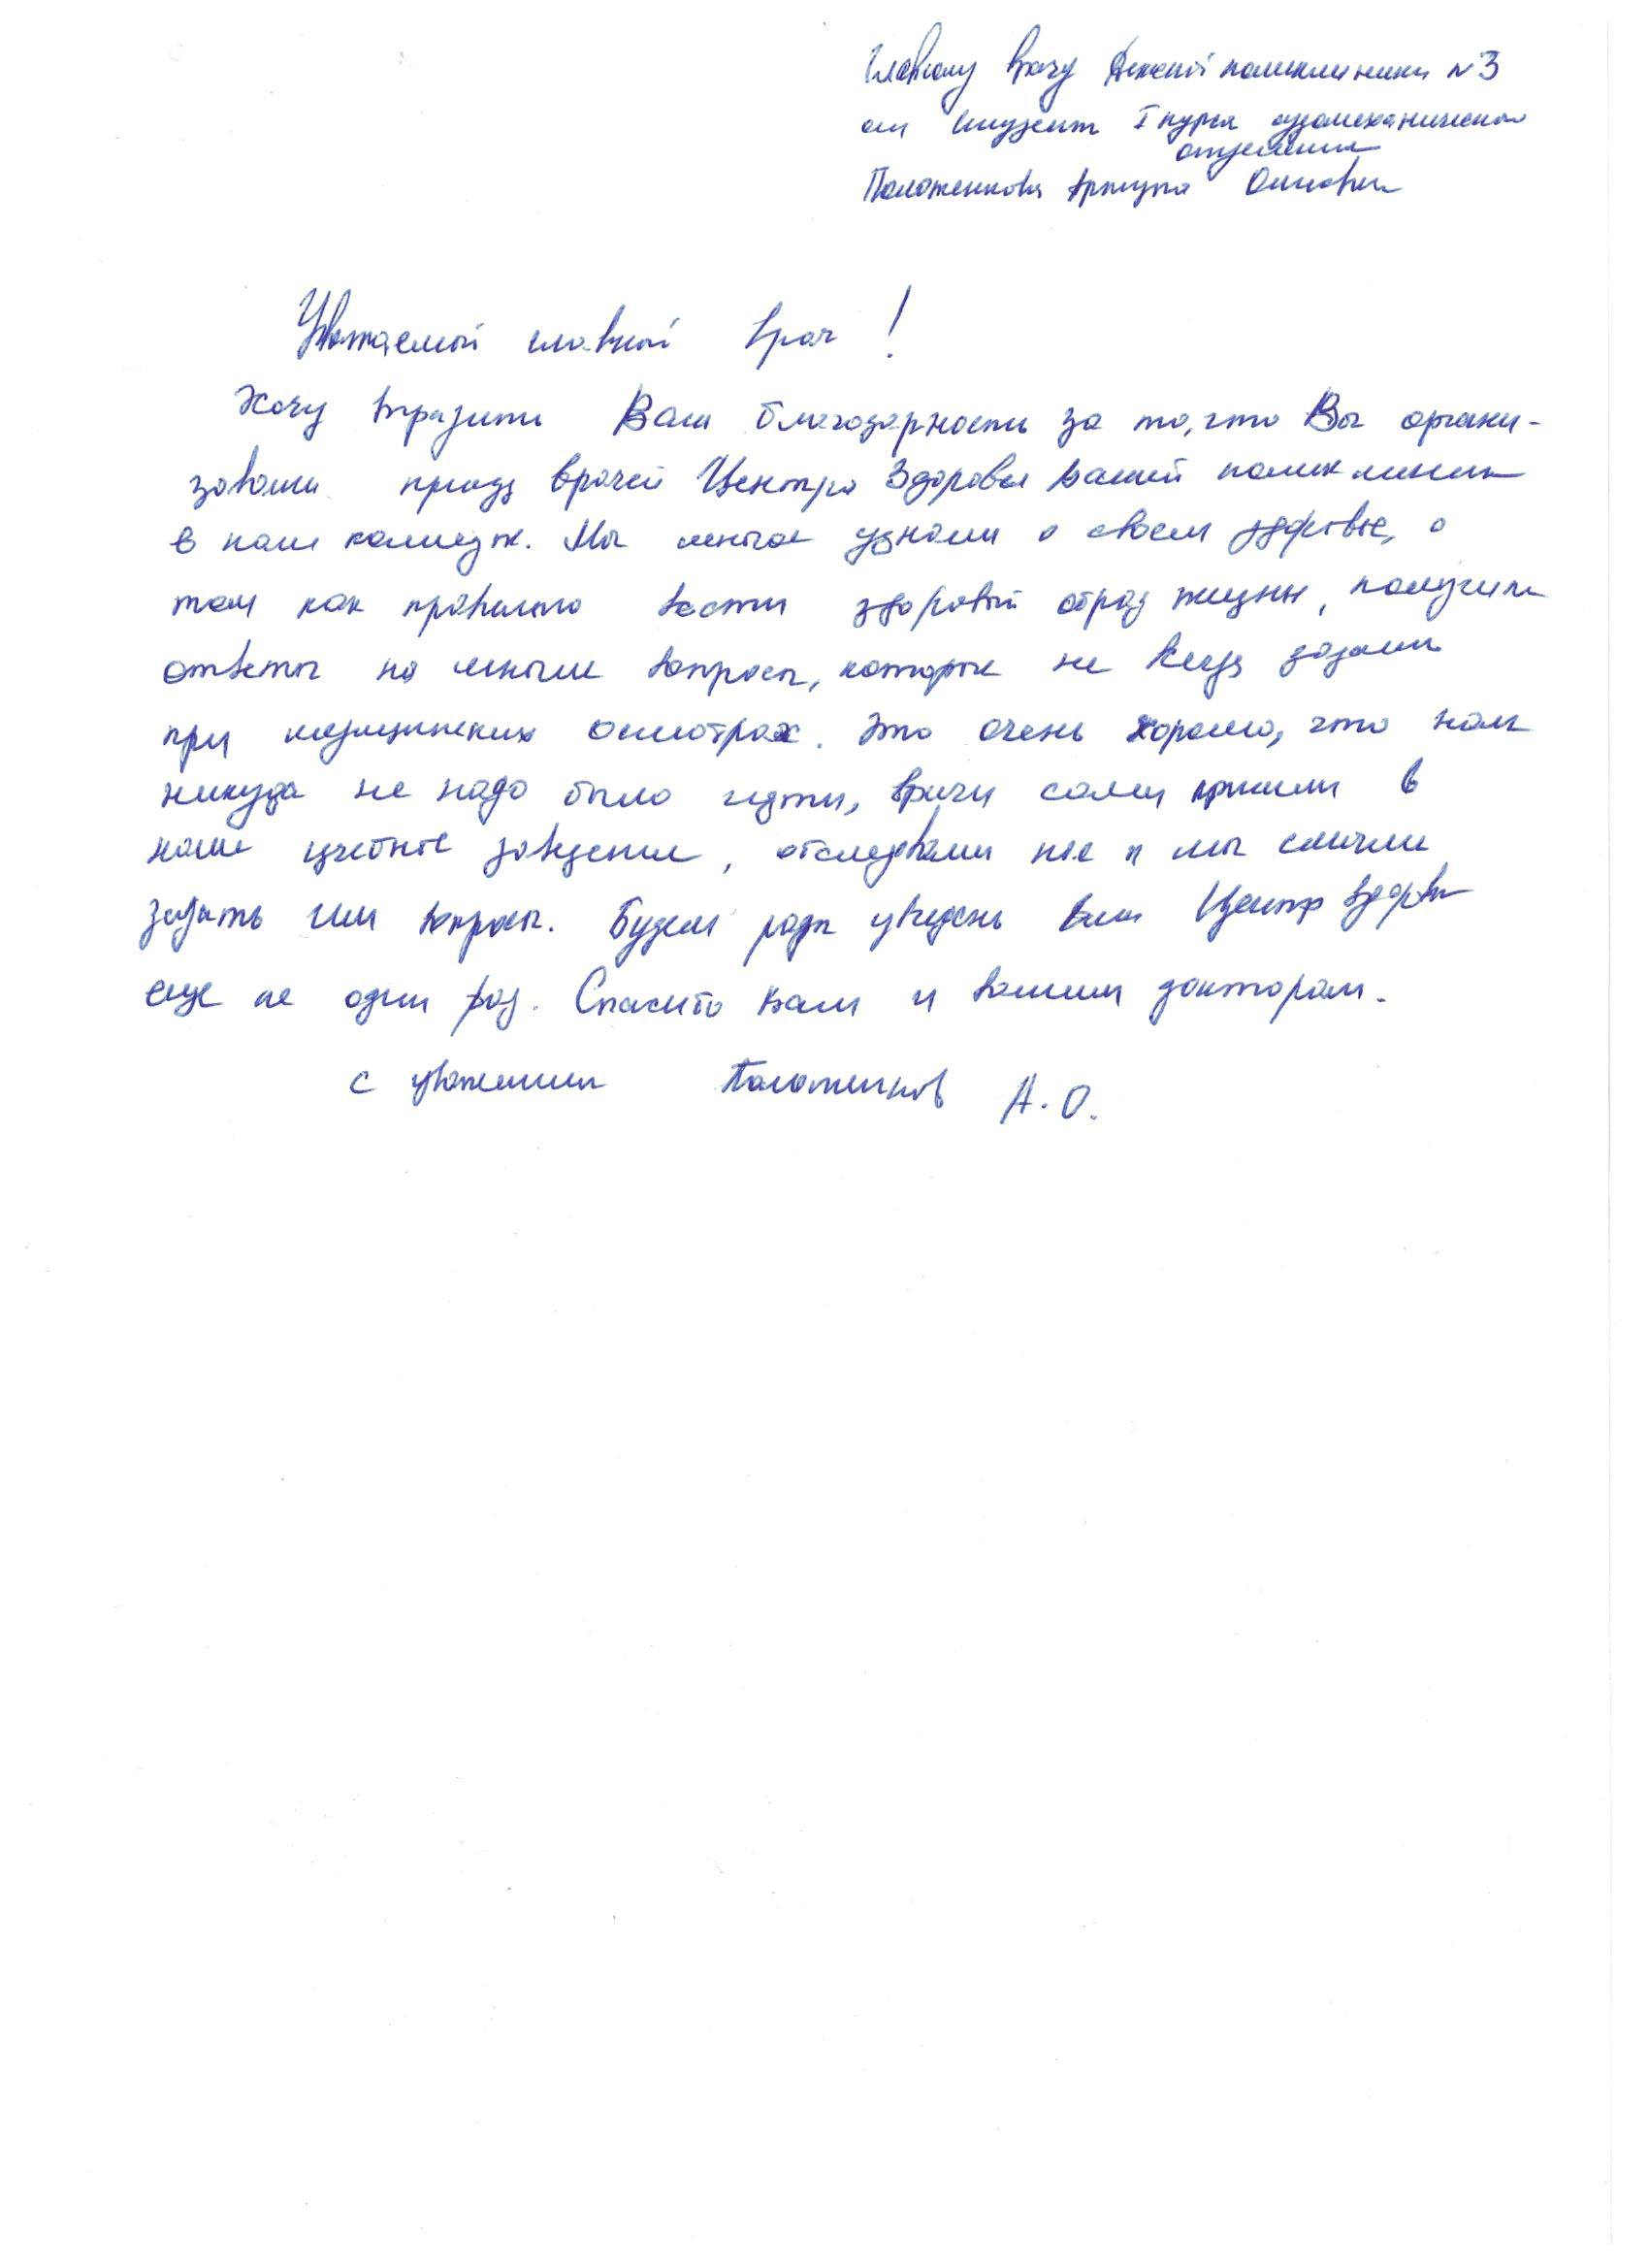 Главному врачу Детской поликлиники №3
от студента I курса судомеханического
отделения
Положенкова Артура
Уважаемый главный врач!
Хочу выразить Вам благодарность за то, что Вы органи-
зовали приезд врачей Центра Здоровья вашей поликлиники
в наш колледж. Мы многое узнали о своем здоровье, о
том как правильно вести здоровый образ жизни, получили
ответы на многие вопросы, которые не всегда задаем
при медицинских осмотрах. Это очень хорошо, что нам
никуда не надо было идти, врачи сами пришли в
наше учебное заведение, обследовали нас и мы смогли
задать им вопросы. Будем рады увидеть ваш Центр здоровья
еще не один раз. Спасибо Вам и вашим докторам.
с уважением Положенков А.О.